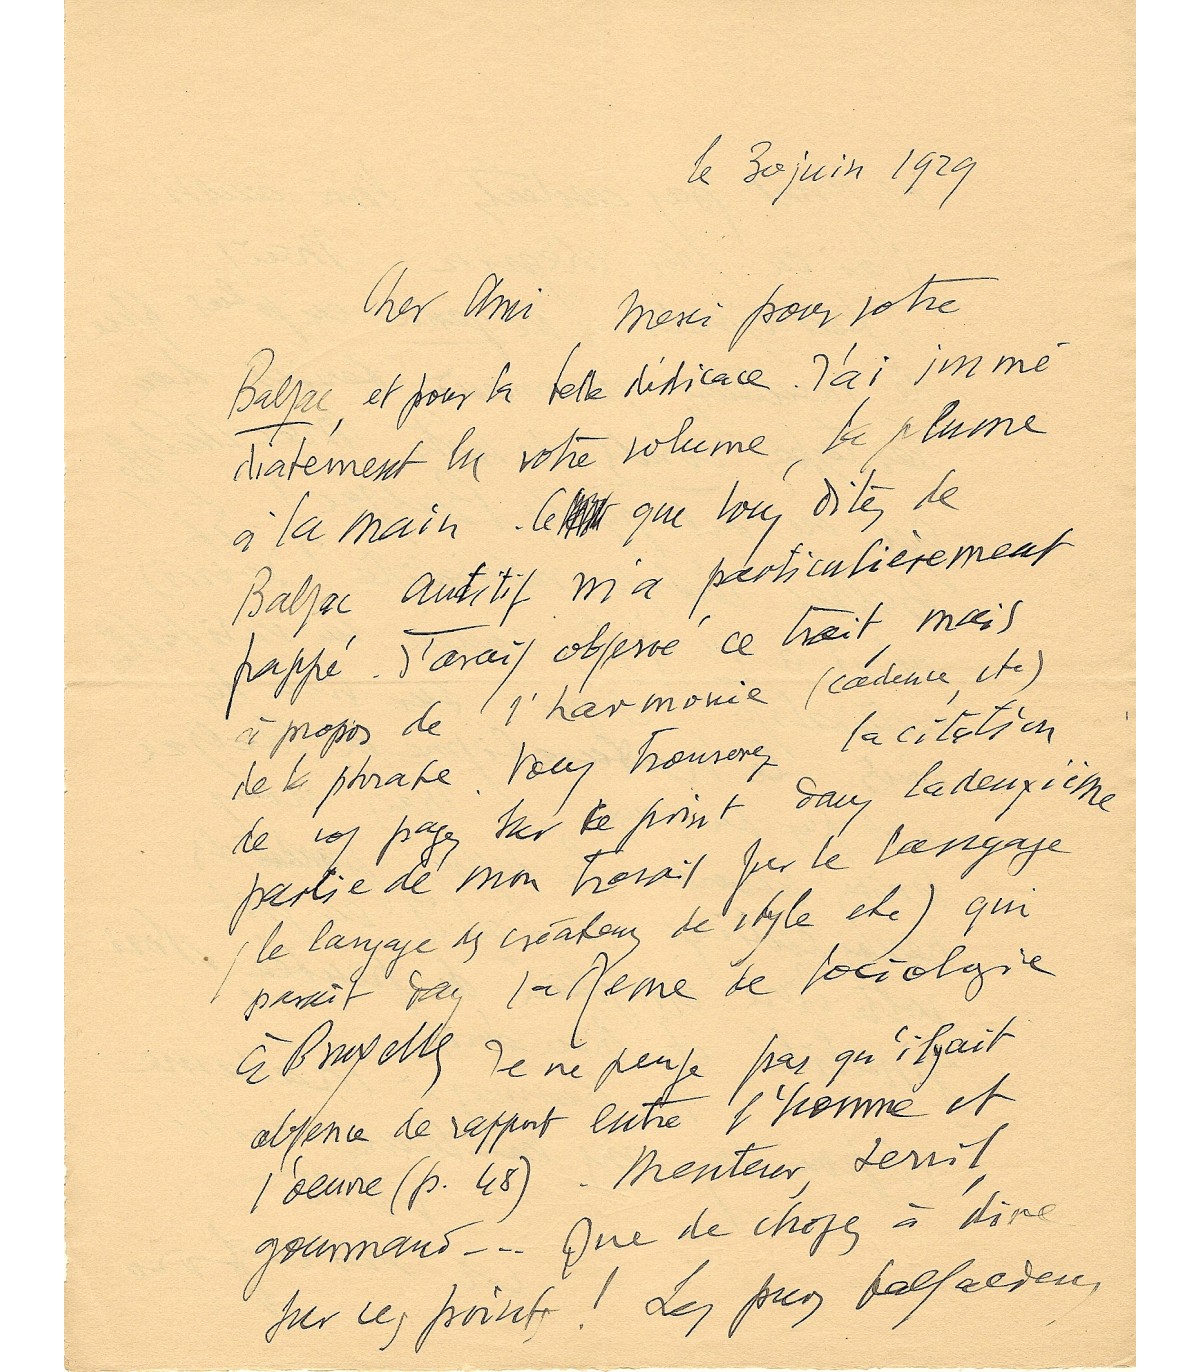 le 30 juin 1929
Cher Ami Merci pour votre
Balzac, et pour la belle dédicace. J'ai immé
diatement lu votre volume, la plume
à la main. Ce que vous dites de
Balzac auditif m'a particulièrement
frappé. J'avais observé ce trait, mais
à propos de l'harmonie (cadence, etc)
de la phrase. Vous trouverez la citation
de vos pages sur ce point dans la deuxième
partie de mon travail sur le langage
(le langage des créateurs de style etc) qui
parait dans la Revue de Sociologie
à Bruxelles Je ne pense pas qu'il y ait
absence de rapport entre l'homme et
l'oeuvre (p. 48). Menteur, servil,
gourmand--- Que de choses à dire
sur ces points! Les purs balzaciens